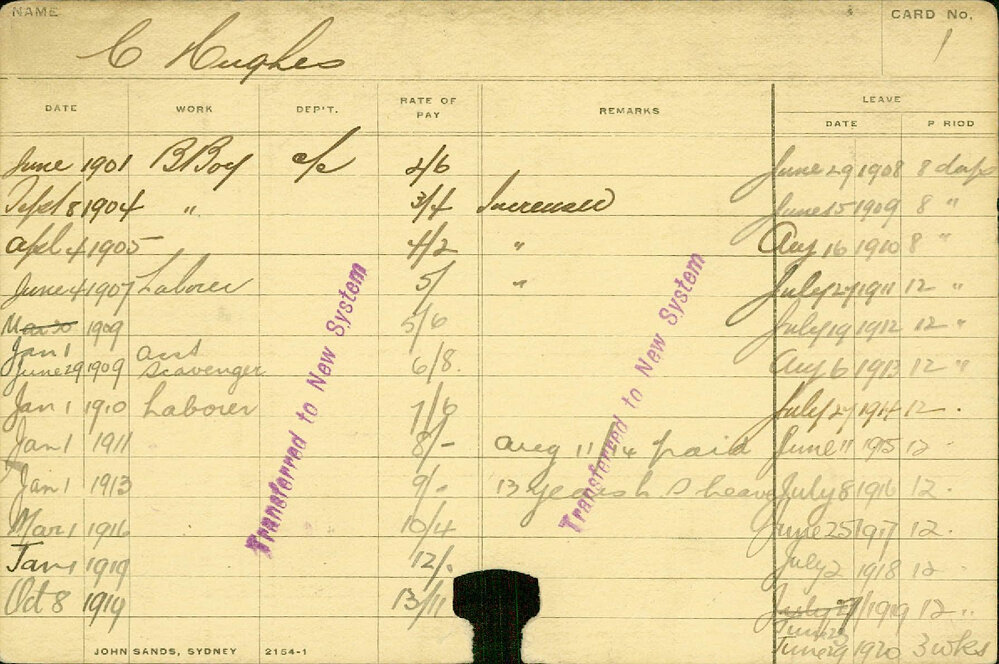 NAME CARD No.
C Hughes 1
DATE WORK DEP'T. RATE OF PAY REMARKS LEAVE
DATE P RIOD
June 1901 B Boy c/s 2/6 June 29 1908 8 days
Sept 8 1904 " 3/4 Increased June 15 1909 8 "
Apl 4 1905 4/2 " Aug 16 1910 8 "
June 4 1907 Laborer 5/ " July 27 1911 12 "
Mar 30 1909 5/6 July 19 1912 12 "
Jan 1
June 29 1909 asst Scavenger 6/8. Aug 6 1913 12 "
Jan 1 1910 Laborer 7/6 July 27 1914 12.
Jan 1 1911 8/- Aug 11/14 paid June 11 1915 12
Jan 1 1913 9/- 13 years L S Leave July 8 1916 12.
Mar 1 1916 10/4 June 25 1917 12.
Jan 1 1919 12/. July 2 1918 12
Oct 8 1919 13/11 July 27/1919 12 "
June 23
June 29 1920 3 wks
Transferred to New System
Transferred to New System
JOHN SANDS, SYDNEY 2154-1